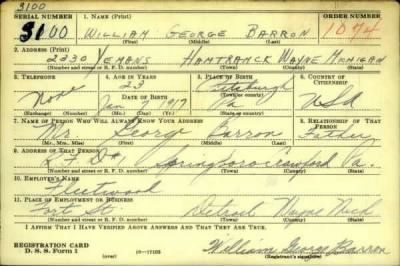 3100
SERIAL NUMBER 1. NAME (Print) ORDER NUMBER
3100 WILLIAM GEORGE BARRON 1074
(First) (Middle) (Last)
2. ADDRESS (Print)
2330 YEMANS HAMTRAMCK WAYNE MICHIGAN
(Number and street or R. F. D. number) (Town) (County) (State)
3. TELEPHONE 4. AGE IN YEARS 5. PLACE OF BIRTH 6. COUNTRY OF CITIZENSHIP
None 23 Pittsburgh
DATE OF BIRTH (Town or county)
Jan 7 1917 Pa USA
(Exchange) (Number) (Mo.) (Day) (Yr.) (State or country)
7. NAME OF PERSON WHO WILL ALWAYS KNOW YOUR ADDRESS 8. RELATIONSHIP OF THAT PERSON
Mr George Barron Father
(Mr., Mrs., Miss) (First) (Middle) (Last)
9. ADDRESS OF THAT PERSON
Springboro Crawford Pa.
(Number and street or R. F. D. number) (Town) (County) (State)
10. EMPLOYER'S NAME
Fleetwood
11. PLACE OF EMPLOYMENT OR BUSINESS
Fort St. Detroit Wayne Mich
(Number and street or R. F. D. number) (Town) (County) (State)
I AFFIRM THAT I HAVE VERIFIED ABOVE ANSWERS AND THAT THEY ARE TRUE.
REGISTRATION CARD
D. S. S. Form 1 (over) 16-17105 William George Barron
(Registrant's signature)